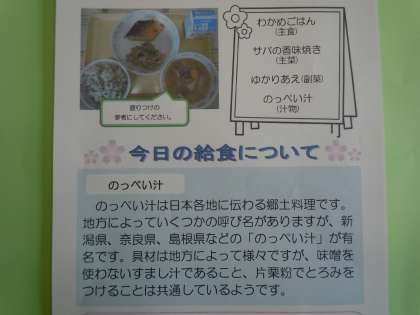 わかめごはん
(主食)
サバの香味焼き
(主菜)
ゆかりあえ(副菜)
のっぺい汁
(汁物)
盛りつけの
参考にしてください。
今日の給食について
のっぺい汁
のっぺい汁は日本各地に伝わる郷土料理です。
地方によっていくつかの呼び名がありますが、新
潟県、奈良県、島根県などの「のっぺい汁」が有
名です。具材は地方によって様々ですが、味噌を
使わないすまし汁であること、片栗粉でとろみを
つけることは共通しているようです。